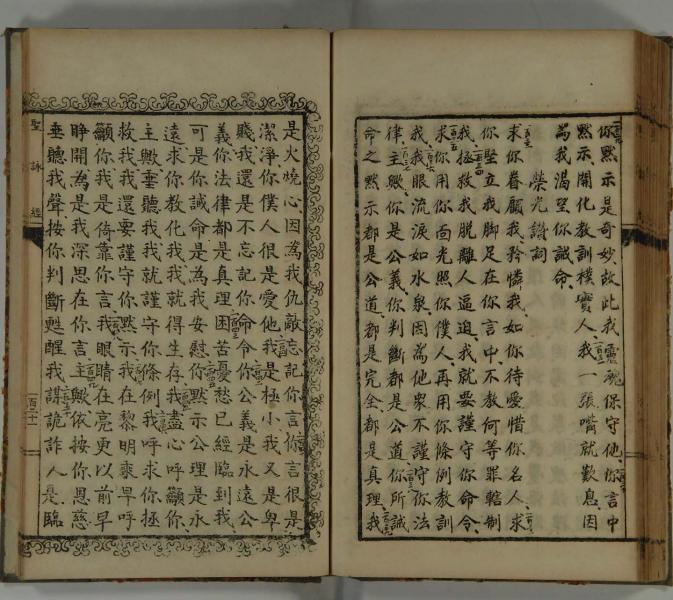 你默示是奇妙故此我靈魂保守他你言中
默示開化教訓樸實人我一張嘴就歎息因
為我渴望你誡命
榮光讚詞
求你眷顧我矜憐我如你待愛惜你名人求
你堅立我脚足在你言中不教何等罪轄制
我拯救我脫離人逼迫我就要謹守你命令
求你用你面光照你僕人再用你條例教訓
我我眼流淚如水泉因為他衆不謹守你法
律主歟你是公義你判斷都是公道你所誡
命之默示都是公道都是完全都是真理我
是火燒心因為我仇敵忘記你言你言很是
潔淨你僕人很是愛他我是極小我又是卑
賤我還是不忘記你命令你公義是永遠公
義你法律都是真理困苦憂愁已經臨到我
可是你誡命是為我安慰你默示公理是永
遠求你教化我我就得生存我盡心呼籲你
主歟垂聽我我就謹守你條例我呼求你拯
救我我還要謹守你默示我在黎明乘早呼
籲你我是倚靠你言我眼睛在亮更以前早
睜開為是我深思在你言主歟依按你恩慈
垂聽我聲按你判斷甦醒我謀詭詐人是臨
聖詠經